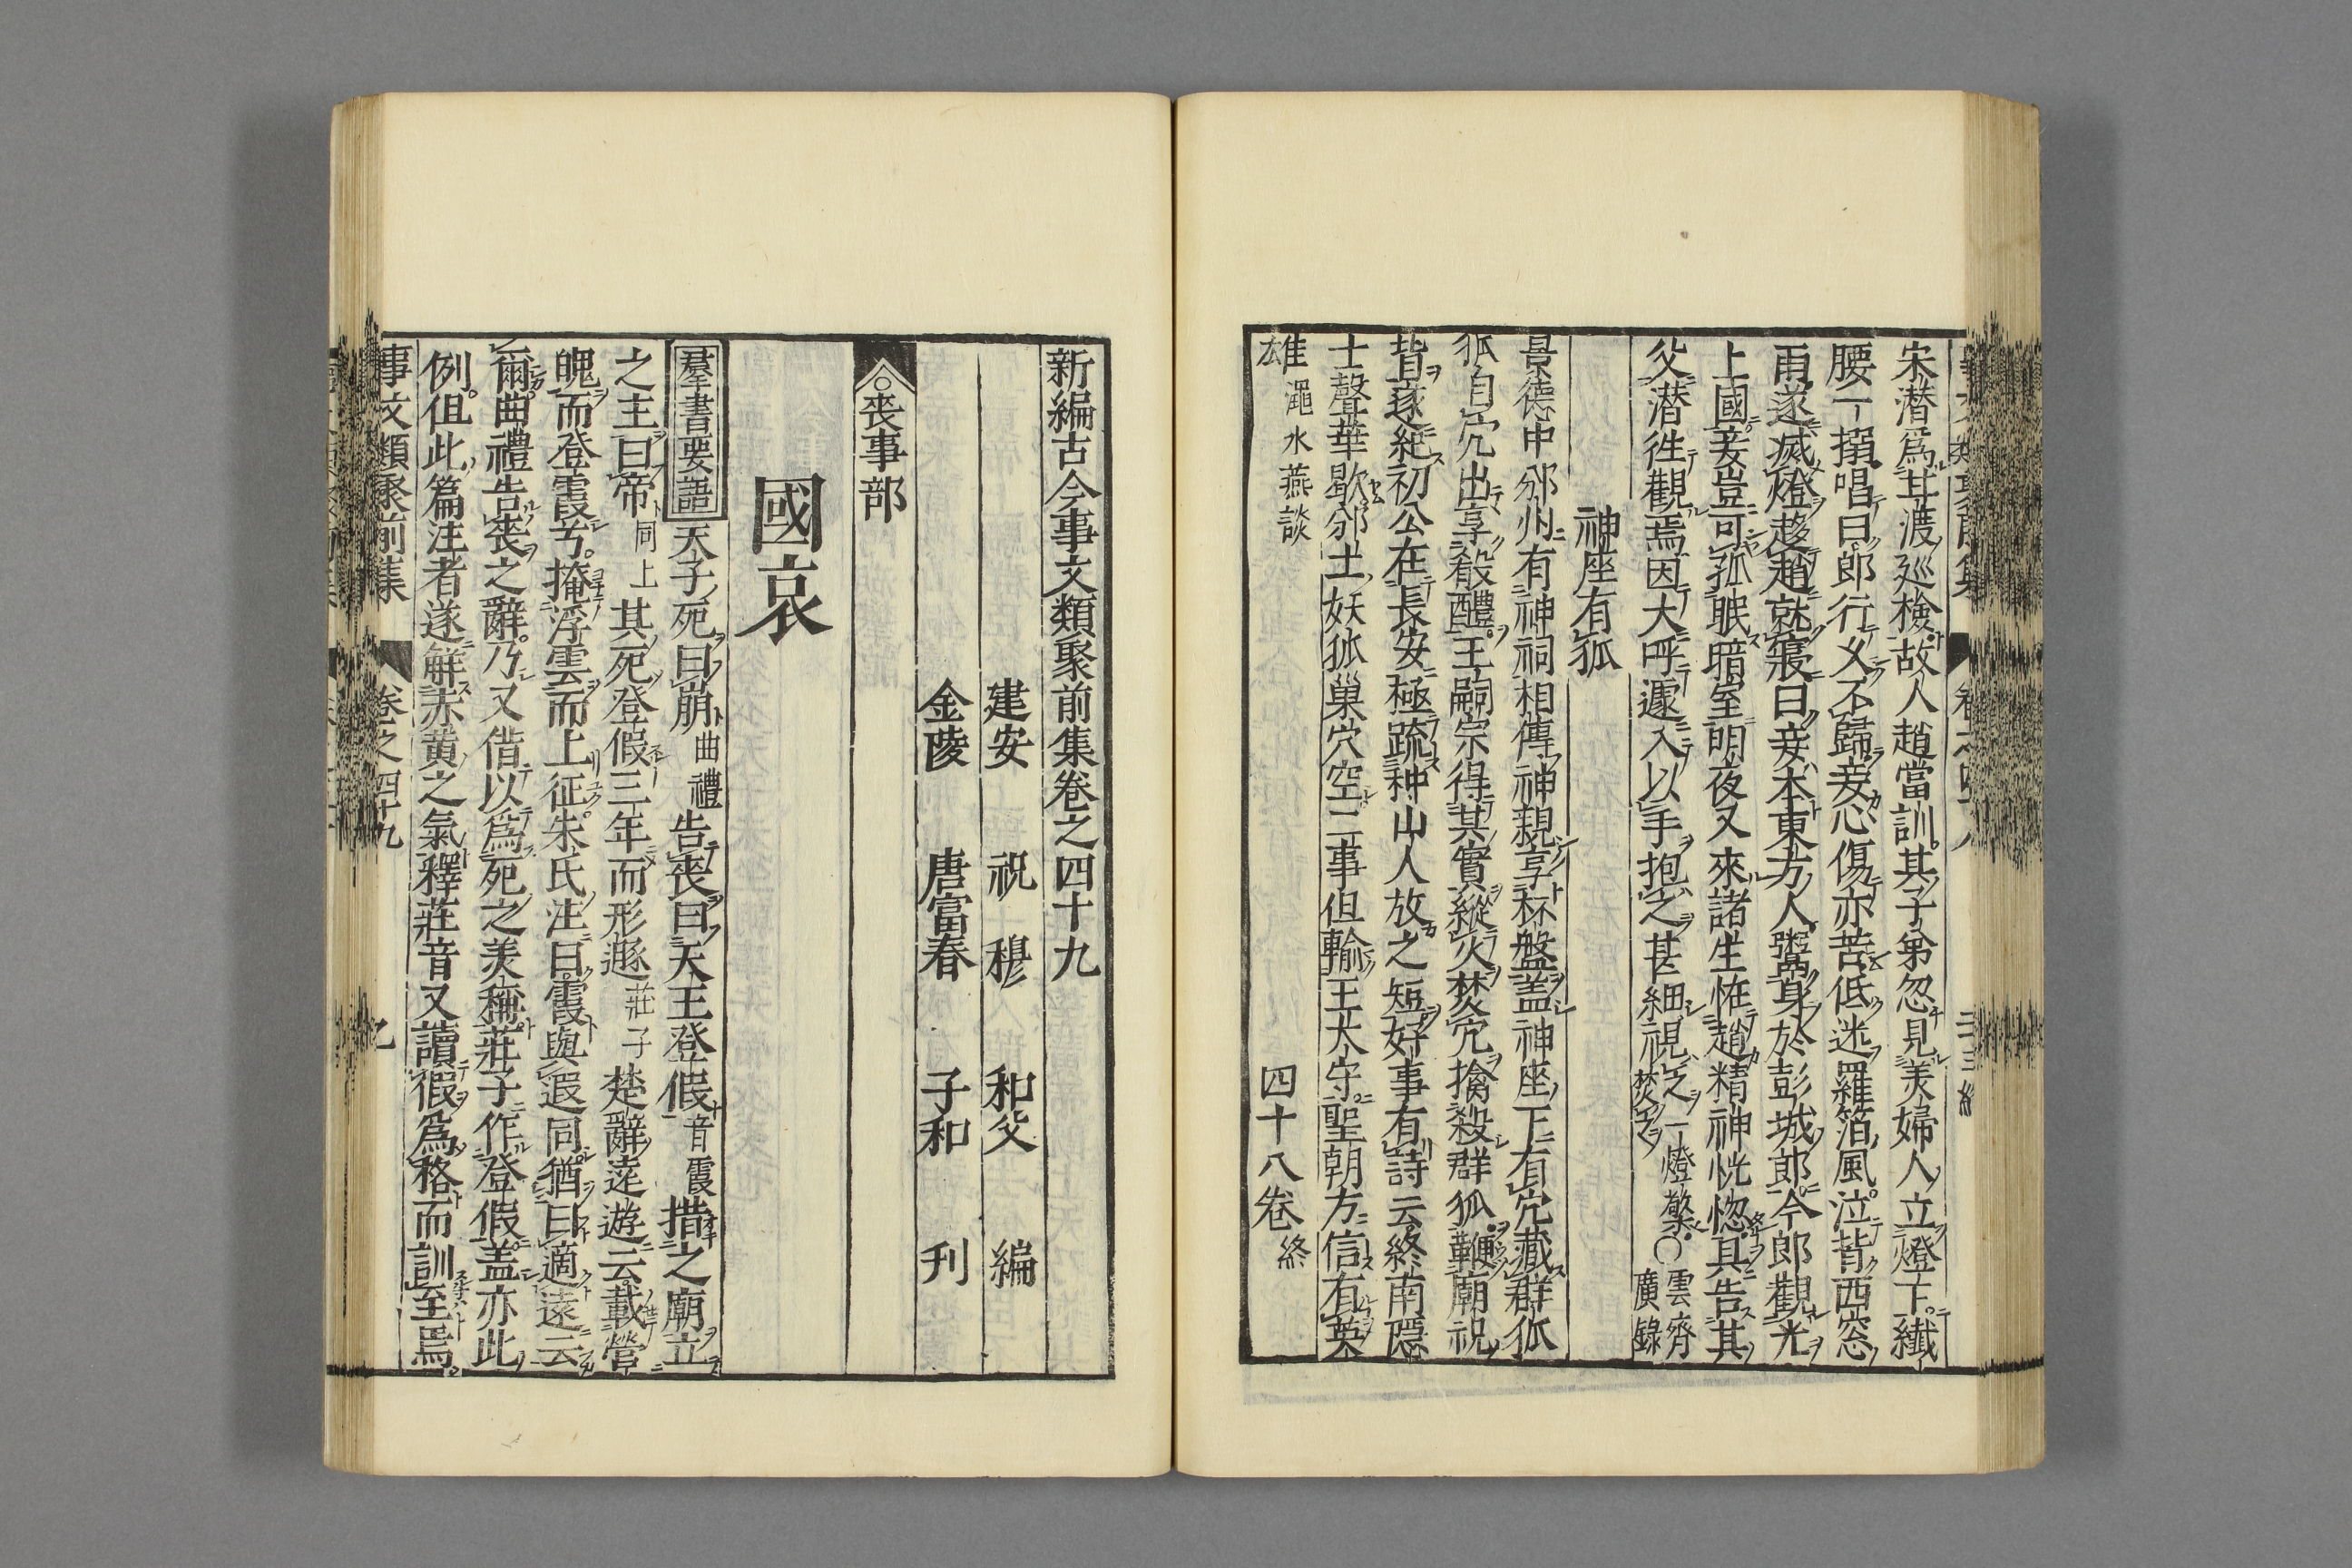 宋潜爲甘渡廵檢故人趙當訓其子弟忽見美婦人立燈下纎
腰一搦唱曰郎行久不歸妾心傷亦苦低迷羅箔風泣背西窓
雨遂滅燈趍趙就寢曰妾本東方人鬻身於彭城郎今郎觀光
上國妾豈可孤眠暗室明夜又來諸生怪趙精神恍惚具告其
父潜徃觀焉因大呼遽入以手抱之甚細視之一燈檠焚之〇雲齊廣錄
神座有狐
景德中邠州有神祠相傳神親享杯盤盖神座下有穴藏群狐
狐自穴出享殽醴王嗣宗得其實縱火焚穴擒殺群狐鞭廟祝
背遂絕初公在長安極疏种山人放之短好事有詩云終南隱
士聲華歇邠土妖狐巢穴空二事但輸王太守聖朝方信有英
雄 澠水燕談 四十八卷終
新編古今事文類聚前集卷之四十九
建安 祝 穆 和父 編
金陵 唐富春 子和 刋
〇喪事部
國哀
羣書要語 天子死曰崩曲禮告喪曰天王登假音霞措之廟立
之主曰帝同上其死登假三年而形遯莊子楚辭逺遊云載營
魄而登霞兮掩浮雲而上征朱氏注曰霞與遐同猶曰適遠云
爾曲禮告喪之辭乃又借以爲死之美稱莊子作登假盖亦此
例但此篇注者遂解赤黄之氣釋莊音又讀假爲格而訓至焉
事文類聚前集 卷之四十九